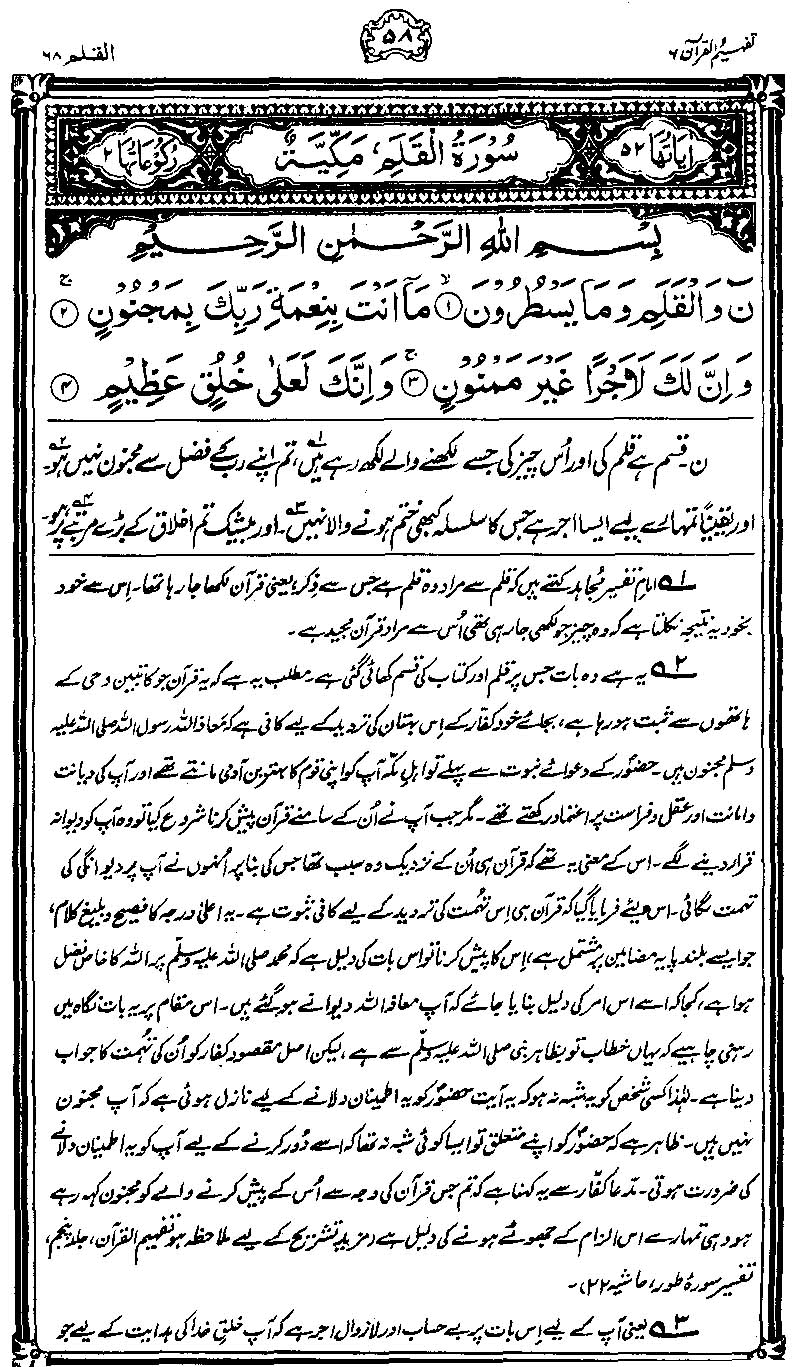 تفہیم القرآن ۶
۵۸
القلم ۶۸
اٰیَاتُهَا ۵۲
سُوْرَةُ الْقَلَمِ مَكِّيَّةٌ
رُكُوْعَاتُهَا ۲
بِسْمِ اللهِ الرَّحْمٰنِ الرَّحِيْمِ
نٓ وَالْقَلَمِ وَمَا يَسْطُرُوْنَ ۙ﴿۱﴾ مَاۤ اَنْتَ بِنِعْمَةِ رَبِّكَ بِمَجْنُوْنٍ ۚ﴿۲﴾
وَاِنَّ لَكَ لَاَجْرًا غَيْرَ مَمْنُوْنٍ ۚ﴿۳﴾ وَاِنَّكَ لَعَلٰى خُلُقٍ عَظِيْمٍ ﴿۴﴾
ن۔ قسم ہے قلم کی اور اُس چیز کی جسے لکھنے والے لکھ رہے ہیں،۱؎ تم اپنے رب کے فضل سے مجنون نہیں ہو۔۲؎
اور یقیناً تمہارے لیے ایسا اجر ہے جس کا سلسلہ کبھی ختم ہونے والا نہیں۔۳؎ اور بیشک تم اخلاق کے بڑے مرتبے پر ہو۔۴؎
۱؎ امامِ تفسیر مُجاہد کہتے ہیں کہ قلم سے مراد وہ قلم ہے جس سے ذِکر، یعنی قرآن لکھا جا رہا تھا۔ اِس سے خود
بخود یہ نتیجہ نکلتا ہے کہ وہ چیز جو لکھی جا رہی تھی اُس سے مراد قرآن مجید ہے۔
۲؎ یہ ہے وہ بات جس پر قلم اور کتاب کی قسم کھائی گئی ہے۔ مطلب یہ ہے کہ یہ قرآن جو کاتبینِ وحی کے
ہاتھوں سے ثبت ہو رہا ہے، بجائے خود کفار کے اِس بہتان کی تردید کے لیے کافی ہے کہ مَعاذ اللہ رسول اللہ صلی اللہ علیہ
وسلم مجنون ہیں۔ حضوؐر کے دعوائے نبوت سے پہلے تو اہلِ مکّہ آپ کو اپنی قوم کا بہترین آدمی مانتے تھے اور آپ کی دیانت
و امانت اور عقل و فراست پر اعتماد رکھتے تھے۔ مگر جب آپ نے اُن کے سامنے قرآن پیش کرنا شروع کیا تو وہ آپ کو دیوانہ
قرار دینے لگے۔ اس کے معنی یہ تھے کہ قرآن ہی اُن کے نزدیک وہ سبب تھا جس کی بنا پر اُنہوں نے آپ پر دیوانگی کی
تہمت لگائی۔ اس لیے فرمایا گیا کہ قرآن ہی اِس تُہمت کی تردید کے لیے کافی ثبوت ہے۔ یہ اعلیٰ درجہ کا فصیح و بلیغ کلام،
جو ایسے بلند پایہ مضامین پر مشتمل ہے، اِس کا پیش کرنا تو اس بات کی دلیل ہے کہ محمد صلی اللہ علیہ وسلّم پر اللہ کا خاص فضل
ہوا ہے، کجا کہ اسے اس امر کی دلیل بنایا جائے کہ آپ معاذ اللہ دیوانے ہو گئے ہیں۔ اس مقام پر یہ بات نگاہ میں
رہنی چاہیے کہ یہاں خطاب تو بظاہر نبی صلی اللہ علیہ وسلّم سے ہے، لیکن اصل مقصود کفار کو اُن کی تُہمت کا جواب
دینا ہے۔ لہٰذا کسی شخص کو یہ شبہ نہ ہو کہ یہ آیت حضوؐر کو یہ اطمینان دلانے کے لیے نازل ہوئی ہے کہ آپ مجنون
نہیں ہیں۔ ظاہر ہے کہ حضوؐر کو اپنے متعلق تو ایسا کوئی شبہ نہ تھا کہ اسے دُور کرنے کے لیے آپ کو یہ اطمینان دلانے
کی ضرورت ہوتی۔ مدّعا کفّار سے یہ کہنا ہے کہ تم جس قرآن کی وجہ سے اُس کے پیش کرنے والے کو مجنون کہہ رہے
ہو وہی تمہارے اس الزام کے جھوٹے ہونے کی دلیل ہے (مزید تشریح کے لیے ملاحظہ ہو تفہیم القرآن، جلد پنجم،
تفسیر سورۂ طور، حاشیہ ۲۲)۔
۳؎ یعنی آپ کے لیے اِس بات پر بے حساب اور لازوال اجر ہے کہ آپ خلقِ خدا کی ہدایت کے لیے جو